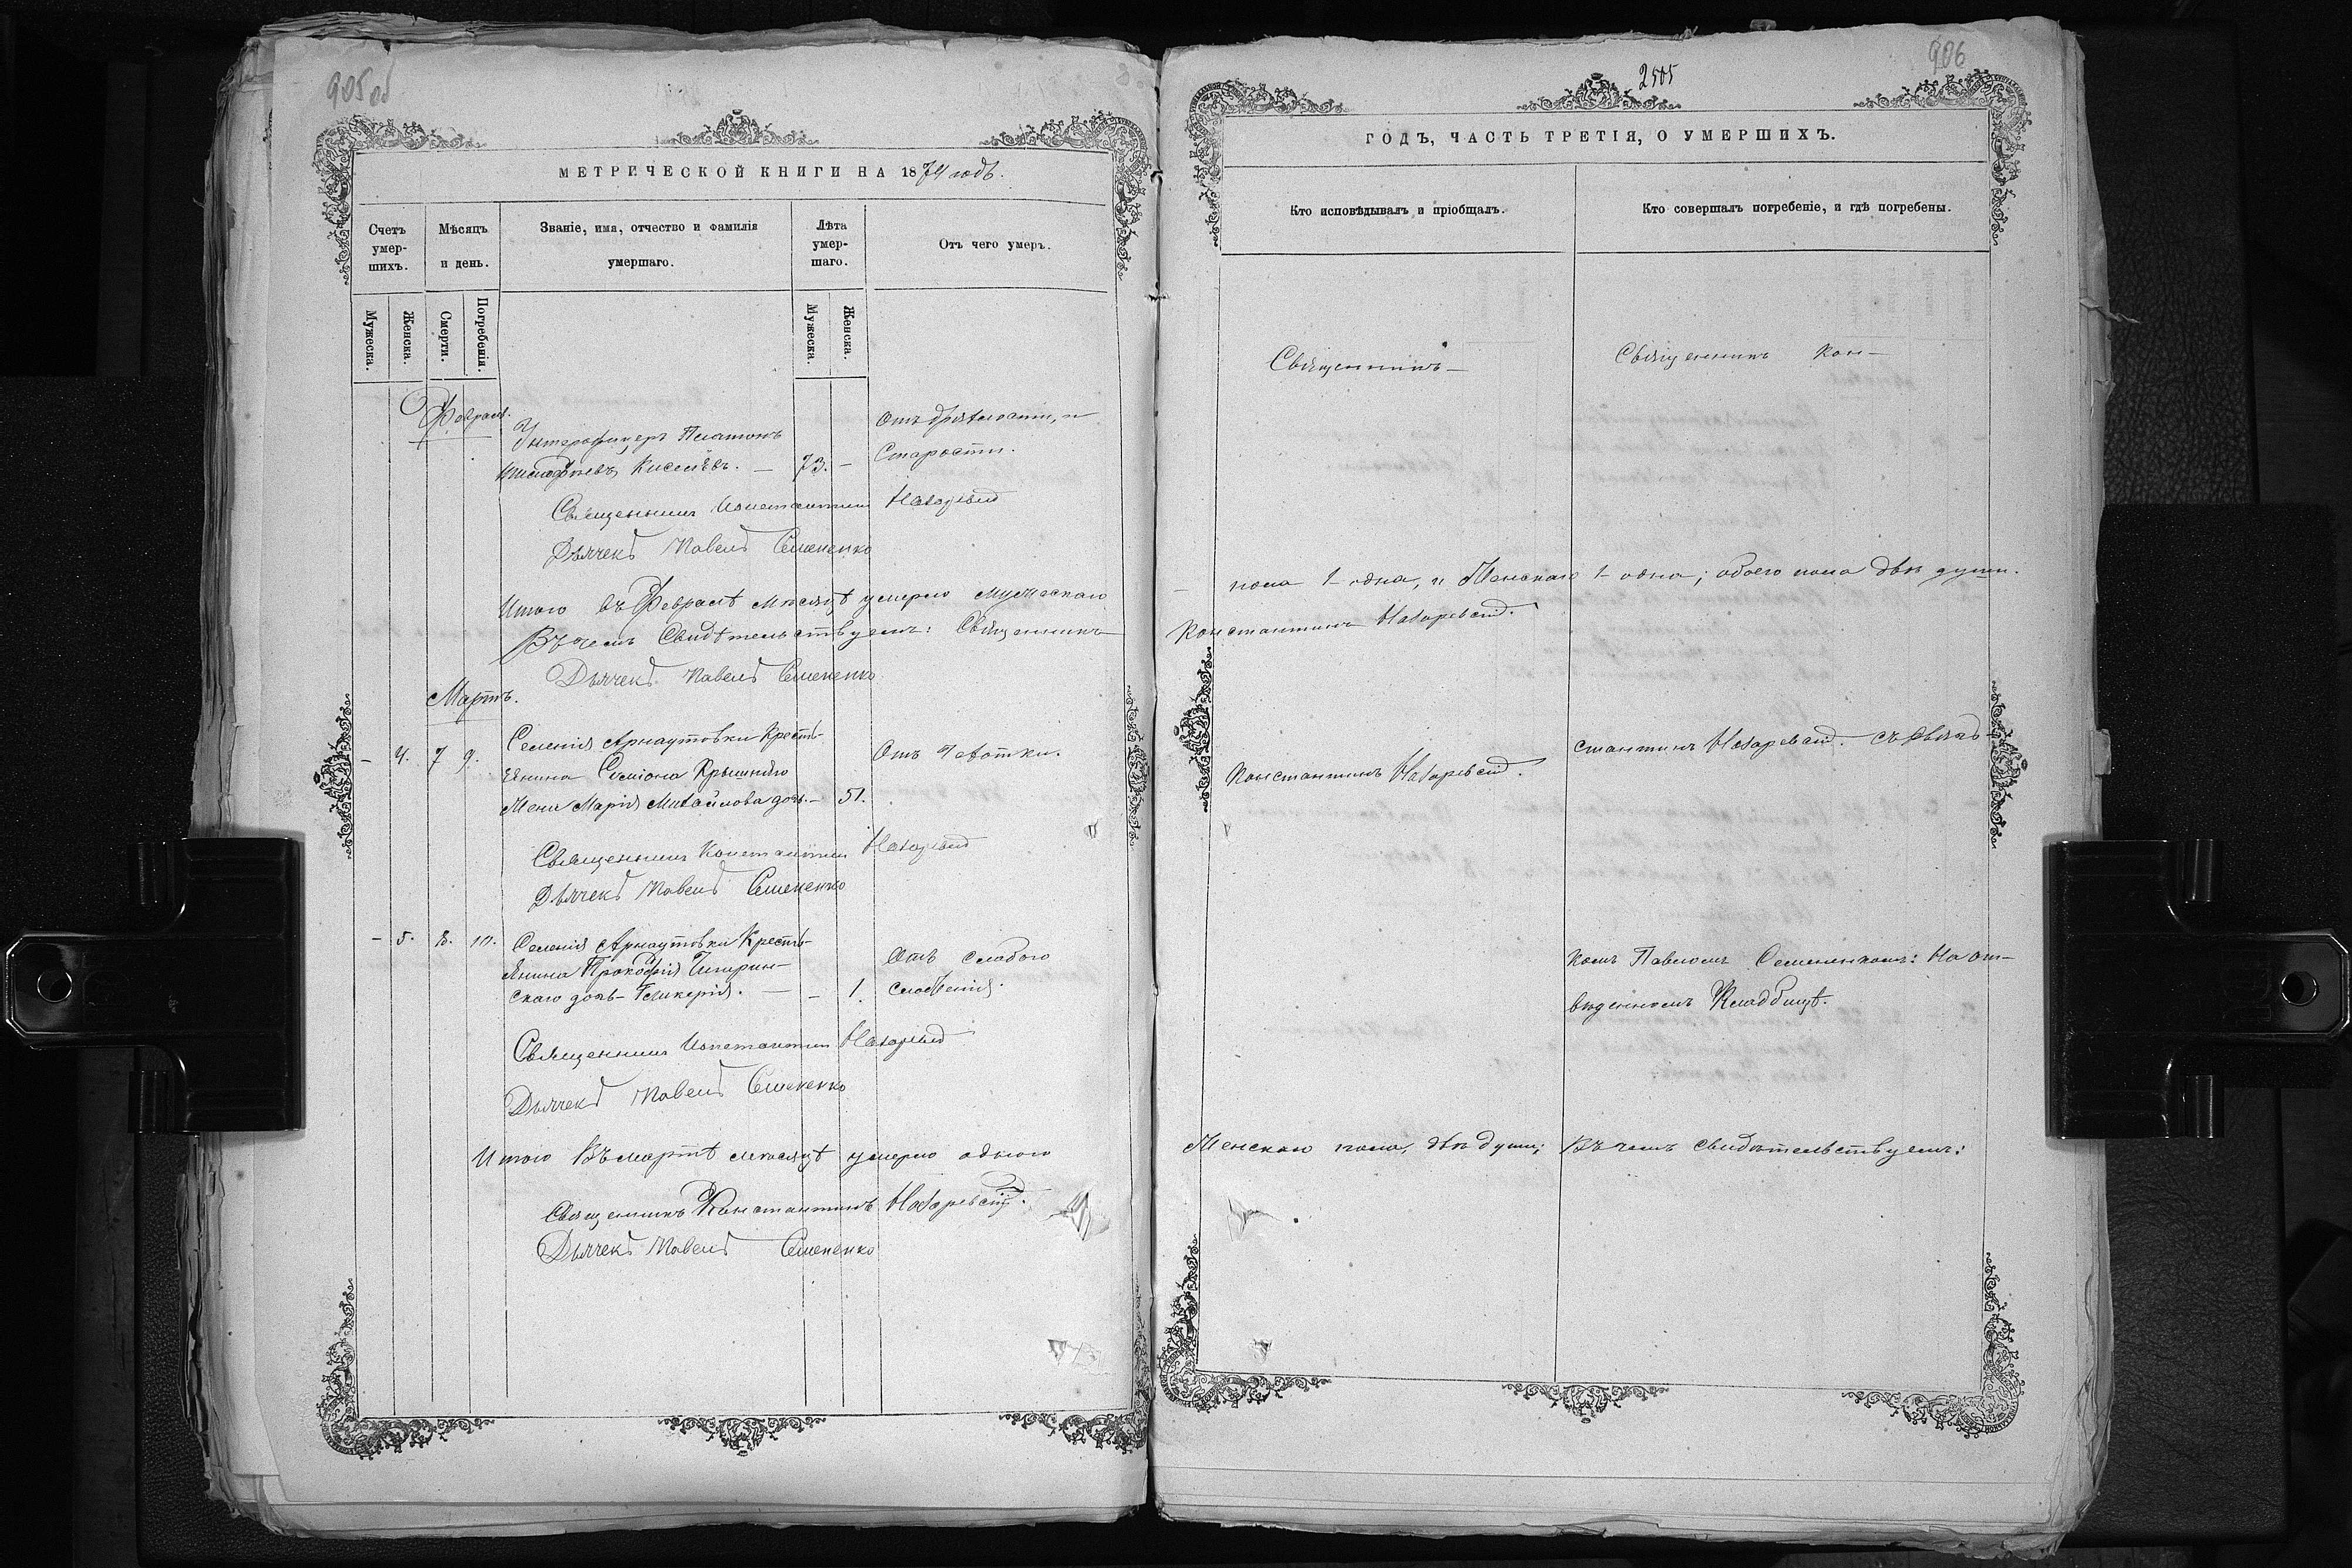 905об
МЕТРИЧЕСКОЙ КНИГИ НА 1874 годъ.
Счетъ умер-шихъ.
Мѣсяцъ и день.
Званіе, имя, отчество и фамилія умершаго.
Лѣта умер-шаго.
Отъ чего умеръ.
Мужеска.
Женска.
Смерти.
Погребенія.
Мужеска.
Женска.
Февраль.
Унтерофицеръ Платонъ
Киселѣвъ. — 73. —
Отъ дряхлости, и
Старости.
Священникъ Константинъ Назаревскій
Дьячекъ Павелъ Семененко
Итого въ Февралѣ мѣсяцѣ умерло мужескаго
Въ чемъ Свидѣтельствуемъ: Священникъ
Дьячекъ Павелъ Семененко
Мартъ.
— 4. 7 9.
Селенія Арнаутовки Кресть-
янина Симіона
Жена Марія Михайлова дочь. — 51.
Отъ Чахотки.
Священникъ Константинъ Назаревскій
Дьячекъ Павелъ Семененко
— 5. 8. 10.
Селенія Арнаутовки Кресть-
янина Прокофія Чигрин-
скаго дочь Гликерія. — — 1.
Отъ слабого
сложенія.
Священникъ Константинъ Назаревскій
Дьячекъ Павелъ Семененко
Итого Въ мартѣ мѣсяцѣ умерло одного
Священникъ Константинъ Назаревскій.
Дьячекъ Павелъ Семененко
906
2505
ГОДЪ, ЧАСТЬ ТРЕТІЯ, О УМЕРШИХЪ.
Кто исповѣдывалъ и пріобщалъ.
Кто совершалъ погребеніе, и гдѣ погребены.
Священникъ —
Священникъ Кон-
пола 1 — одна, и Женскаго 1 — одна; обоего пола двѣ души.
Константинъ Назаревскій.
Константинъ Назаревскій.
стантинъ Назаревскій. съ Дьяч-
комъ Павломъ Семененкомъ: На от-
веденномъ Кладбищѣ.
Женскаго пола, двѣ души; Въ чемъ свидѣтельствуемъ: